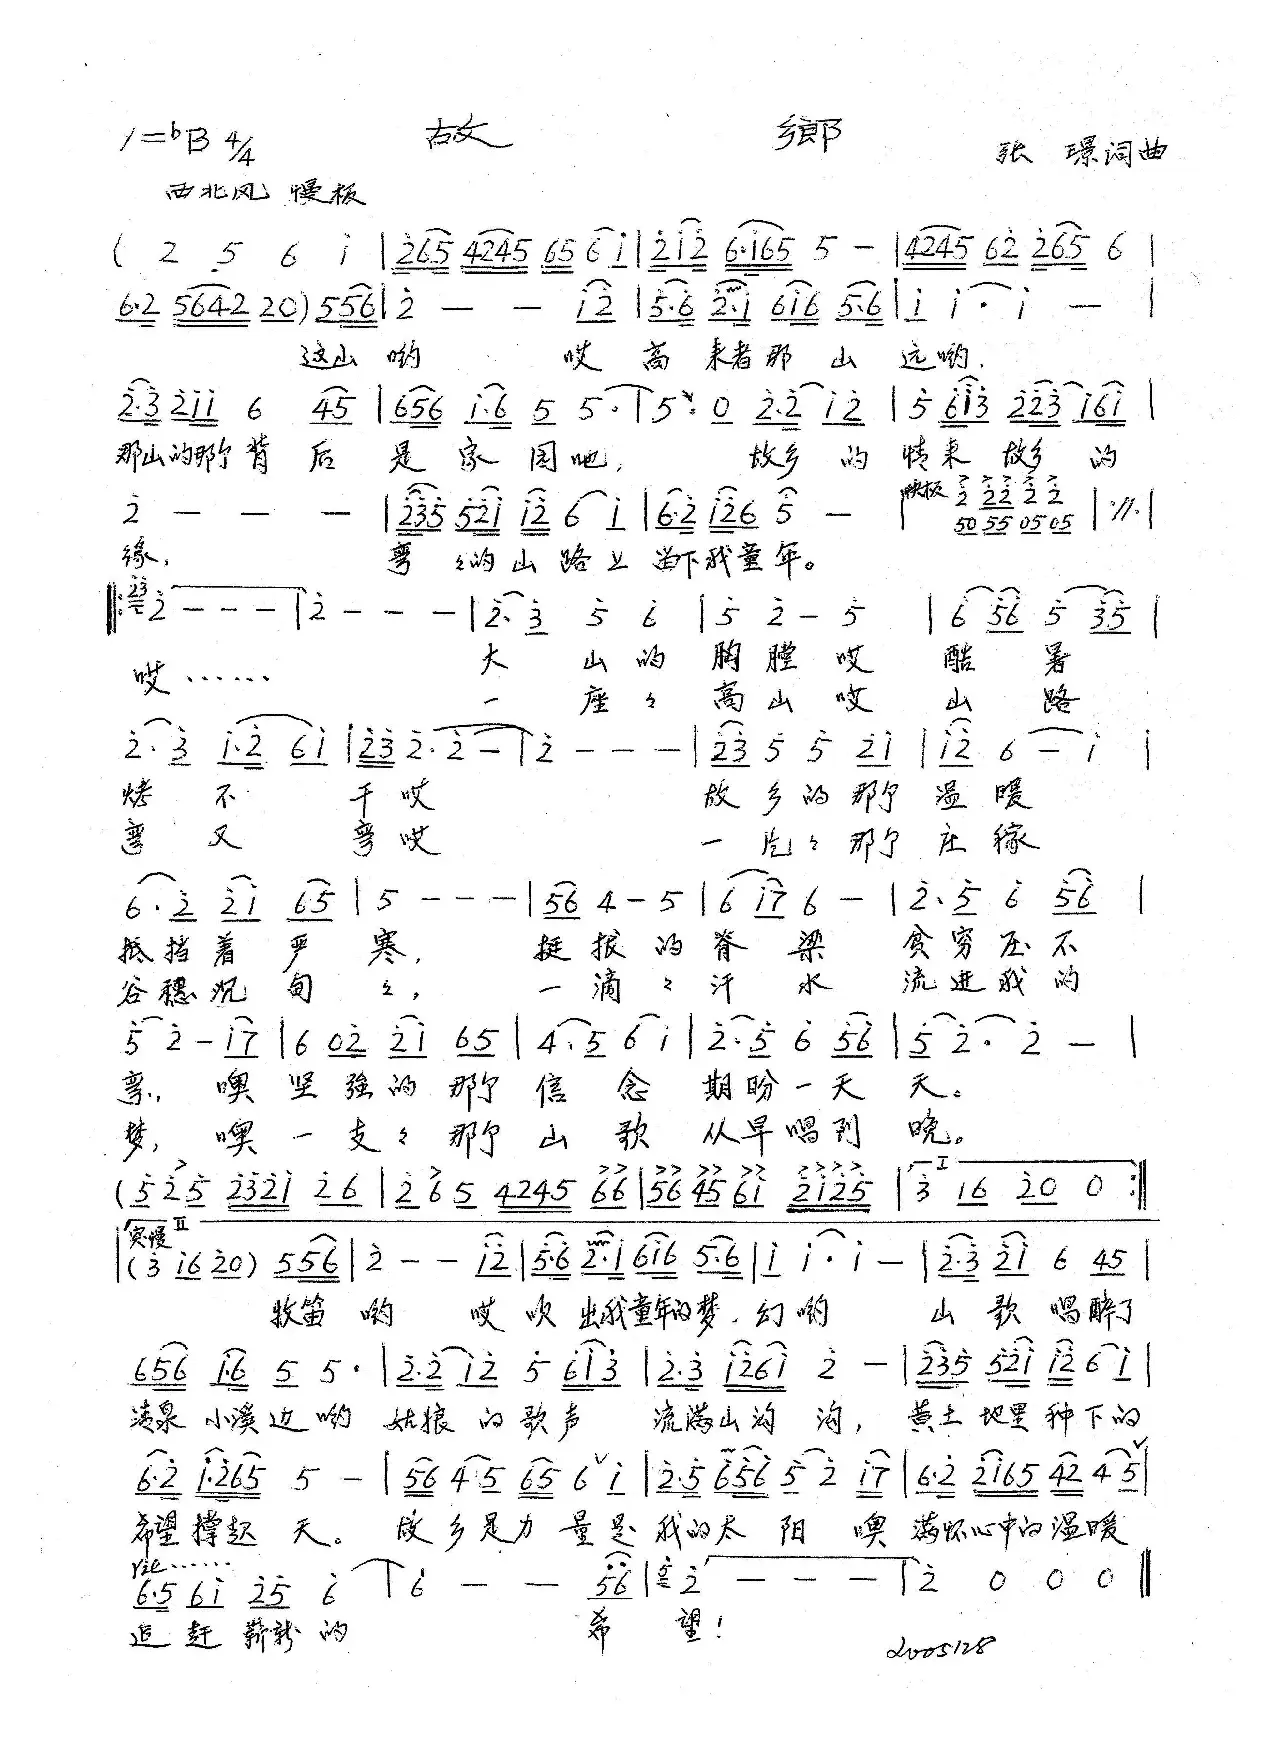 1=ᵇB 4/4 故 鄉 张 璟词曲
西北风 慢板
( 2 5 6 i | 265 4245 65 6 i | 2i2 6·i65 5 - | 4245 62 265 6 |
6·2 5642 20) 556 | 2 - - i2 | 5·6 2·i 6i6 5·6 | i i· i - |
这山哟 哎 高来者那山远哟.
2·3 2ii 6 45 | 656 i·6 5 5· | 5· 0 2·2 i2 | 5 6i3 223 i6i |
那山的那个背后是家园吔, 故乡的情来故乡的
2 - - - | 235 52i i2 6 i | 6·2 i26 5 - 快板 2 22 2 2 50 55 05 05 | ·//· |
缘, 弯々的山路上留下我童年。
‖: 23 2 - - - | 2 - - - | 2·3 5 6 | 5 2 - 5 | 6 56 5 35 |
哎…… 大山的胸膛哎酷暑
一座々高山哎山路
2·3 i·2 6i | 23 2·2 - | 2 - - - | 23 5 5 2i | i2 6 - i |
烤不干哎 故乡的那个温暖
弯又弯哎 一片々那个庄稼
6·2 2i 65 | 5 - - - | 56 4 - 5 | 6 i7 6 - | 2·5 6 56 |
抵挡着严寒, 挺拔的脊梁贫穷压不
谷穗沉甸々, 一滴々汗水流进我的
5 2 - i7 | 6 02 2i 65 | 4·5 6 i | 2·5 6 56 | 5 2· 2 - |
弯, 噢坚强的那个信念期盼一天天。
梦, 噢一支々那个山歌从早唱到晚。
(5 2 5 232i 26 | 2 6 5 4245 66 | 56 45 6i 2i25 | I 3 i6 20 0 :‖
突慢 II
(3 i6 20) 556 | 2 - - i2 | 5·6 2·i 6i6 5·6 | i i· i - | 2·3 2i 6 45 |
牧笛哟哎吹出我童年的梦.幻哟山歌唱醉了
656 i·6 5 5· | 2·2 i2 5 6i3 | 2·3 i26i 2 - | 235 52i i2 6 i |
清泉小溪边哟姑娘的歌声流满山沟沟, 黄土地里种下的
6·2 i·265 5 - | 56 4·5 65 6 i | 2·5 656 5 2 i7 | 6·2 2i65 42 4 5 |
希望撑起天。故乡是力量是我的太阳噢满怀心中的温暖
rit……
6·5 6i 25 6 | 6 - - 56 | 2 - - - | 2 0 0 0 ‖
追赶崭新的 希望!
2005128